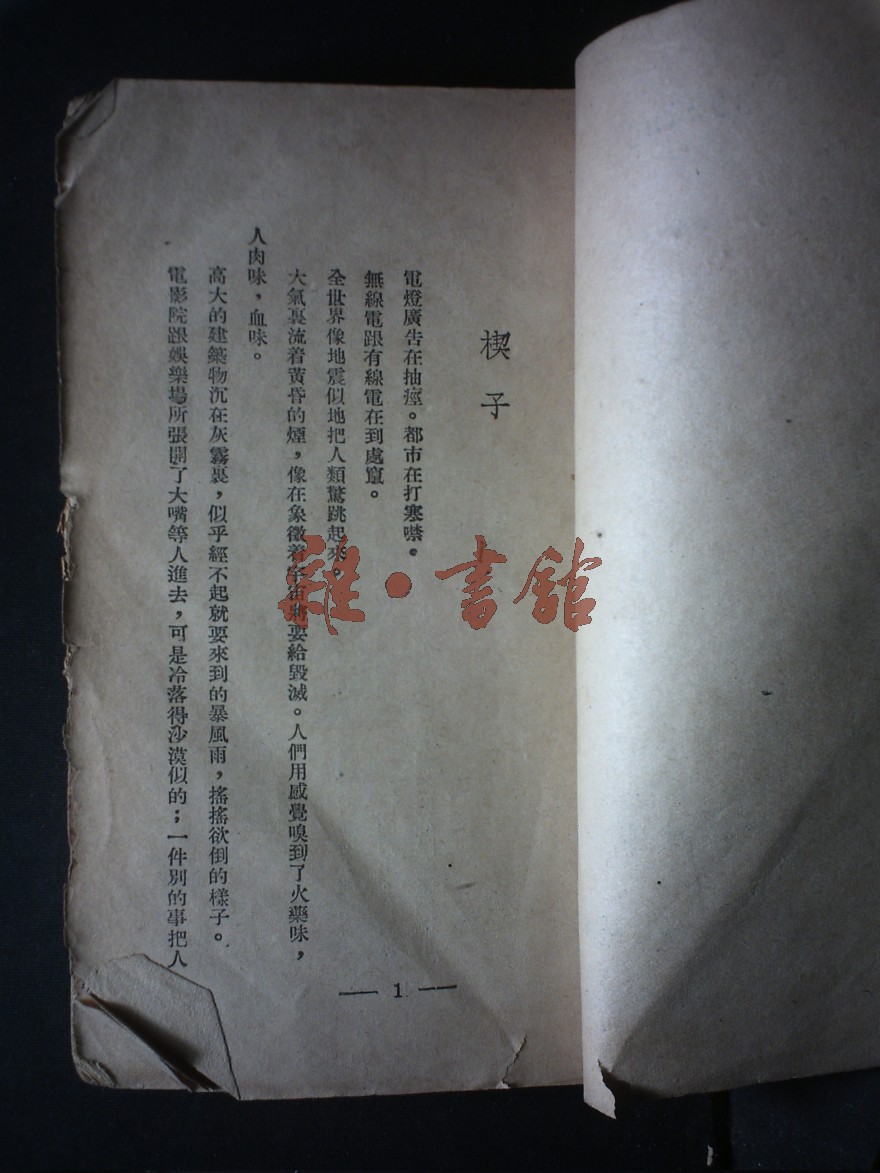 楔子
電燈廣告在抽痙。都市在打寒噤。
無線電跟有線電在到處竄。
全世界像地震似地把人類驚跳起來。
大氣裏流着黃昏的煙，像在象徵着宇宙將要給毀滅。人們用感覺嗅到了火藥味，
人肉味，血味。
高大的建築物沉在灰霧裏，似乎經不起就要來到的暴風雨，搖搖欲倒的樣子。
電影院跟娛樂場所張開了大嘴等人進去，可是冷落得沙漠似的；一件別的事把人
— 1 —
雜·書館